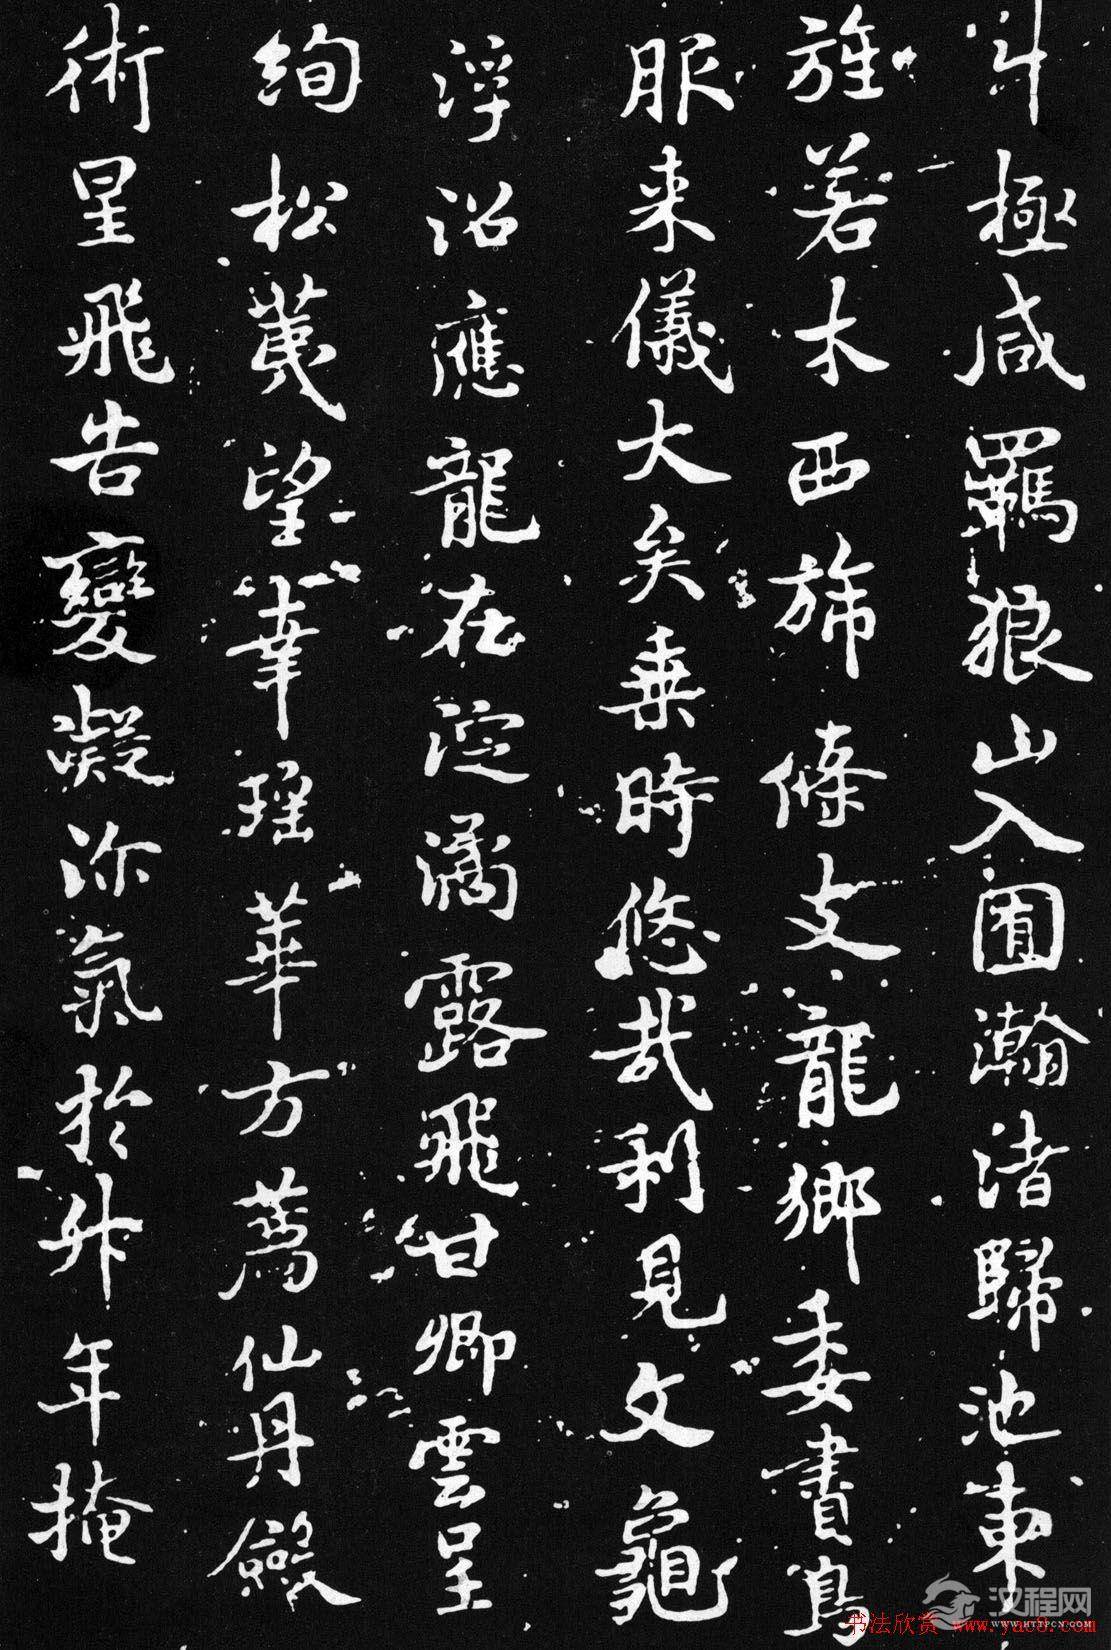 斗極咸羈狼山入囿瀚渚歸池東
旌若木西旆條支龍鄉委書鳥
服来儀大矣乗時悠哉利見文龜
浮沼應龍在淀潏露飛甘卿雲呈
絢松蓂望幸瑤華方薦仙丹斂
術呈飛告變凝沵氣於升年掩
汉程网
WWW.HTTPCN.COM
书法欣赏 www.yac8.com